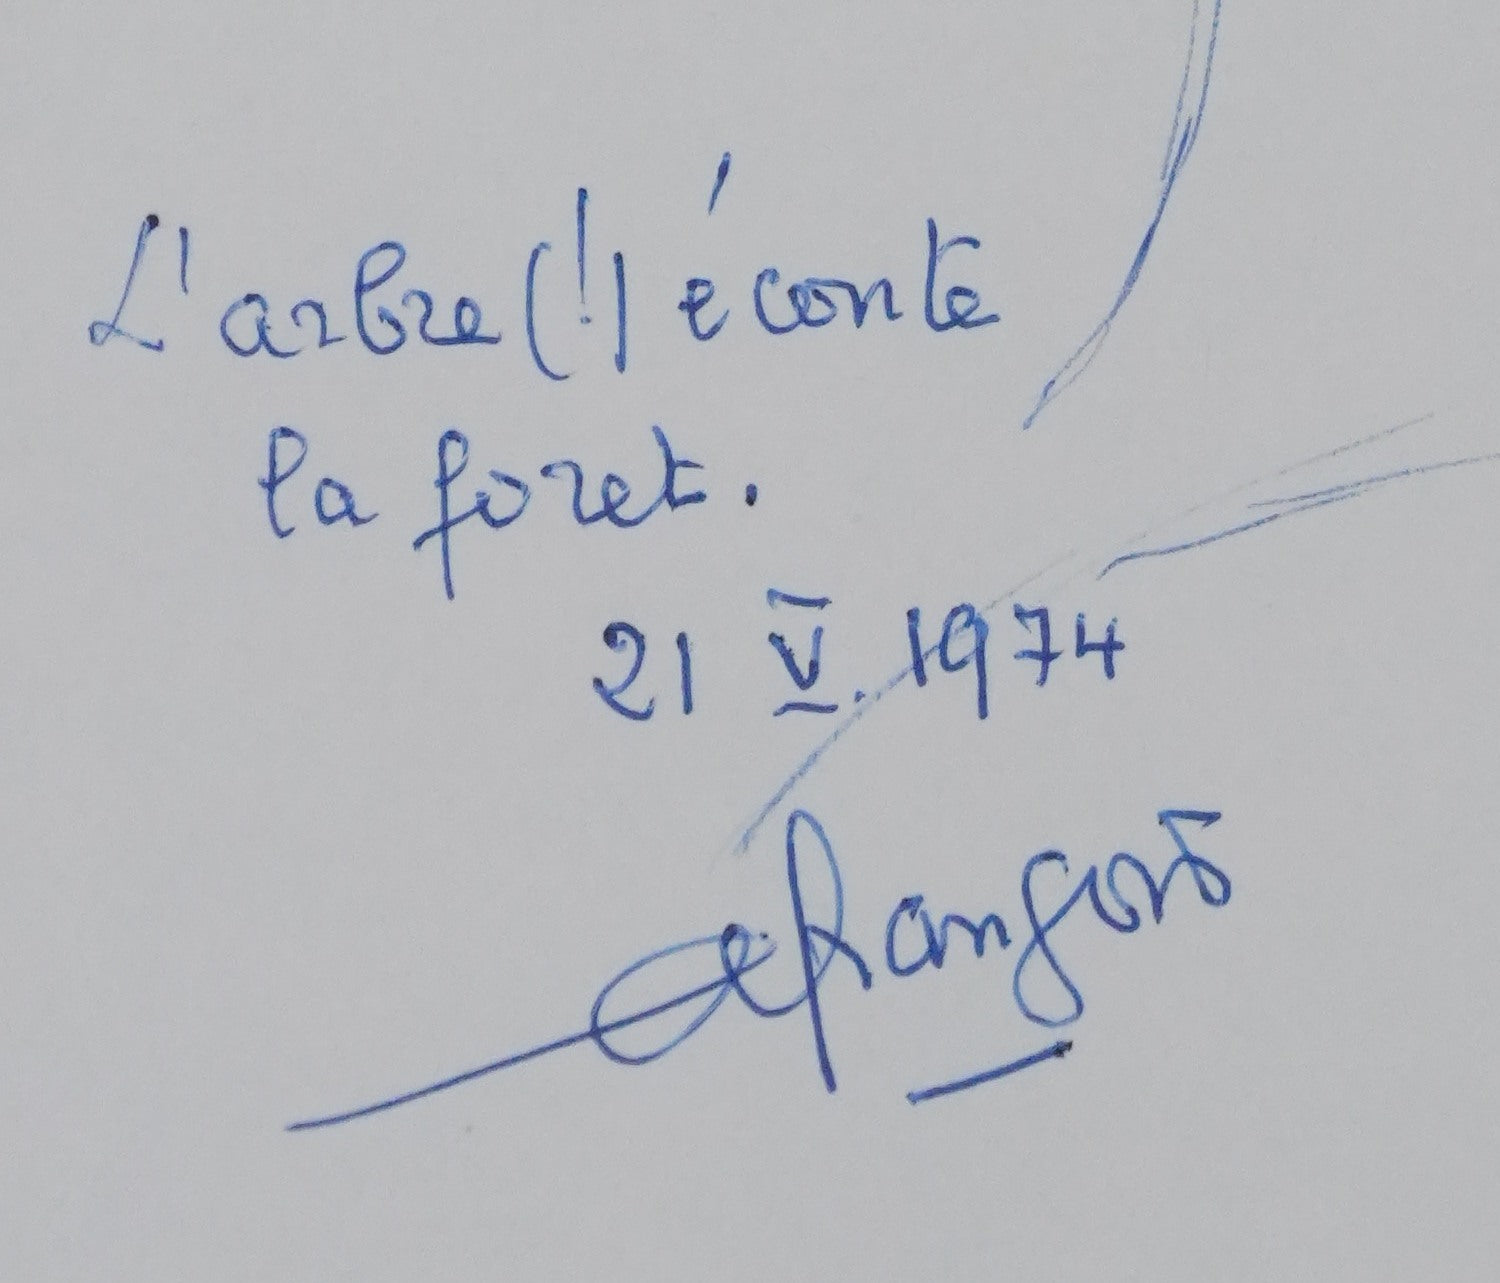 L'arbre (!) écoute
la foret.
21 V. 1974